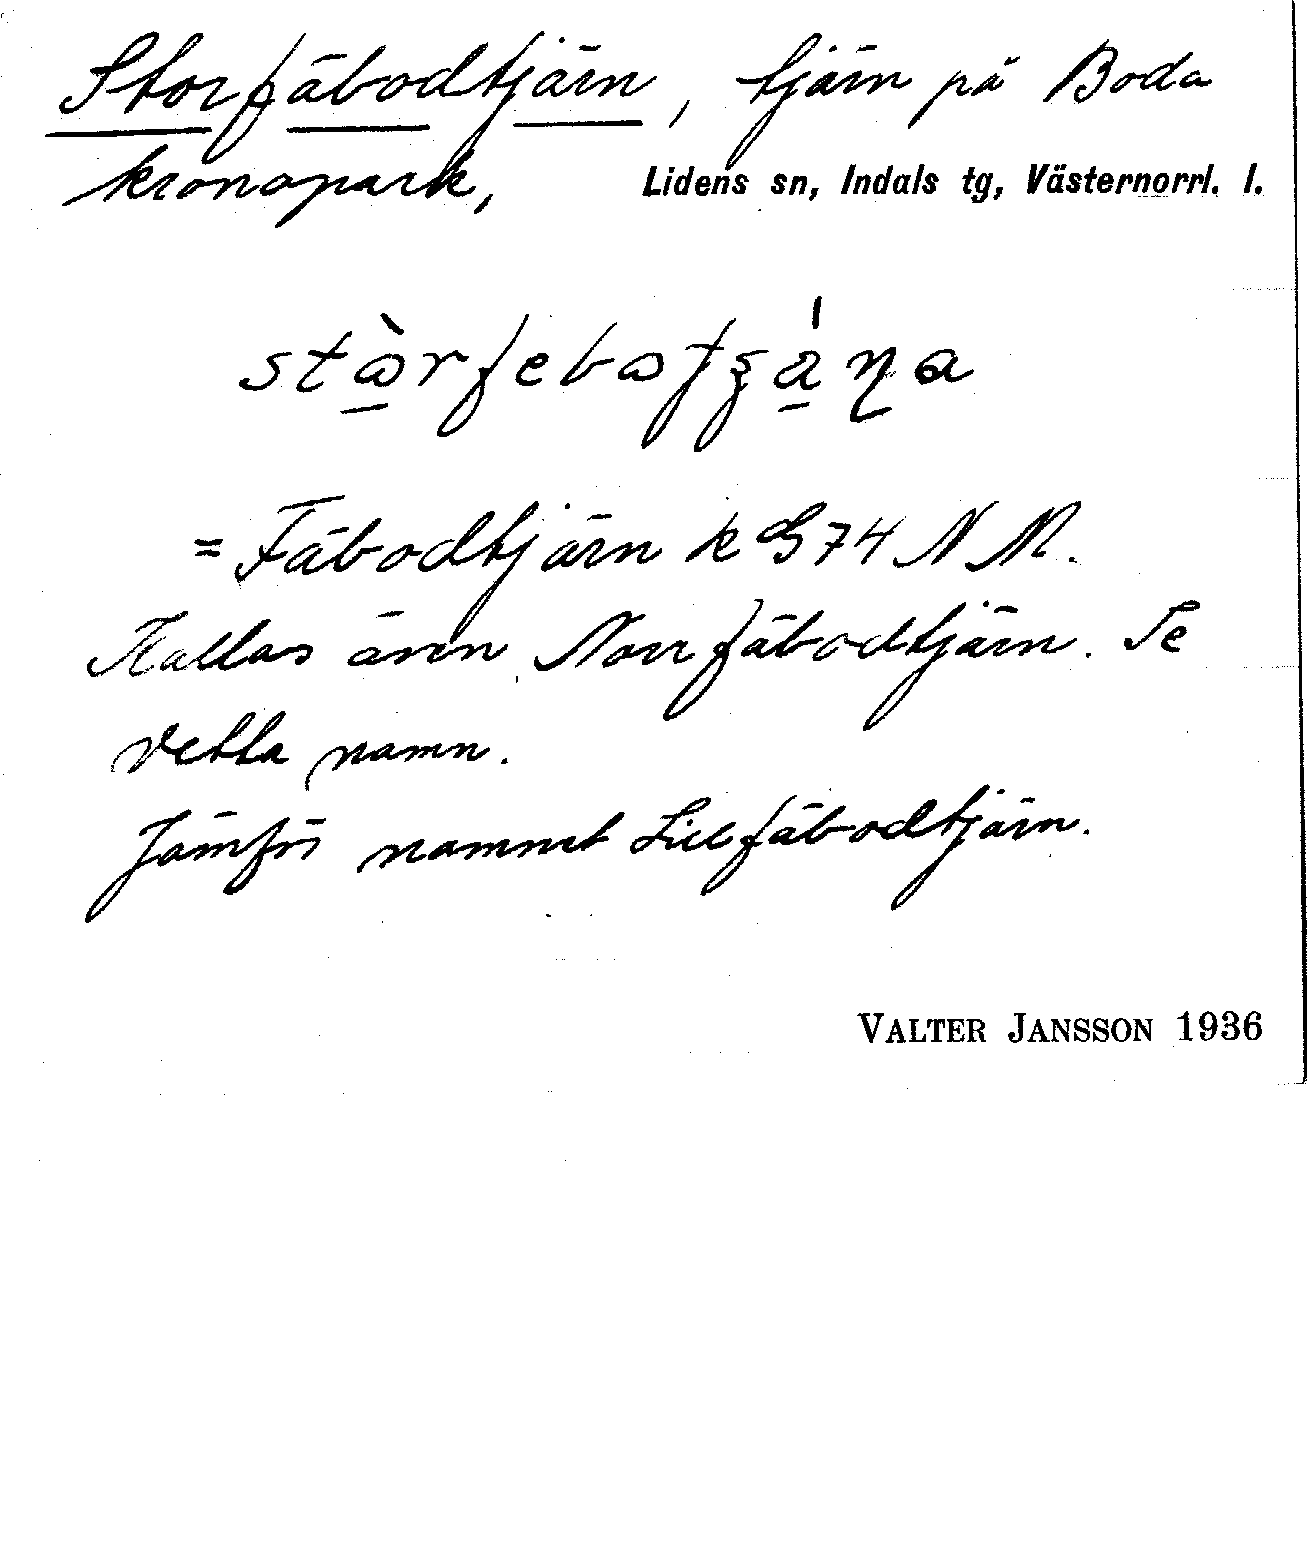 Storfäbodtjärn, tjärn på Boda
kronopark, Lidens sn, Indals tg, Västernorrl. l.
= Fäbodtjärn k G 74 N M.
Kallas även Norrfäbodtjärn. Se
detta namn.
Jämför namnet Lillfäbodtjärn.
VALTER JANSSON 1936